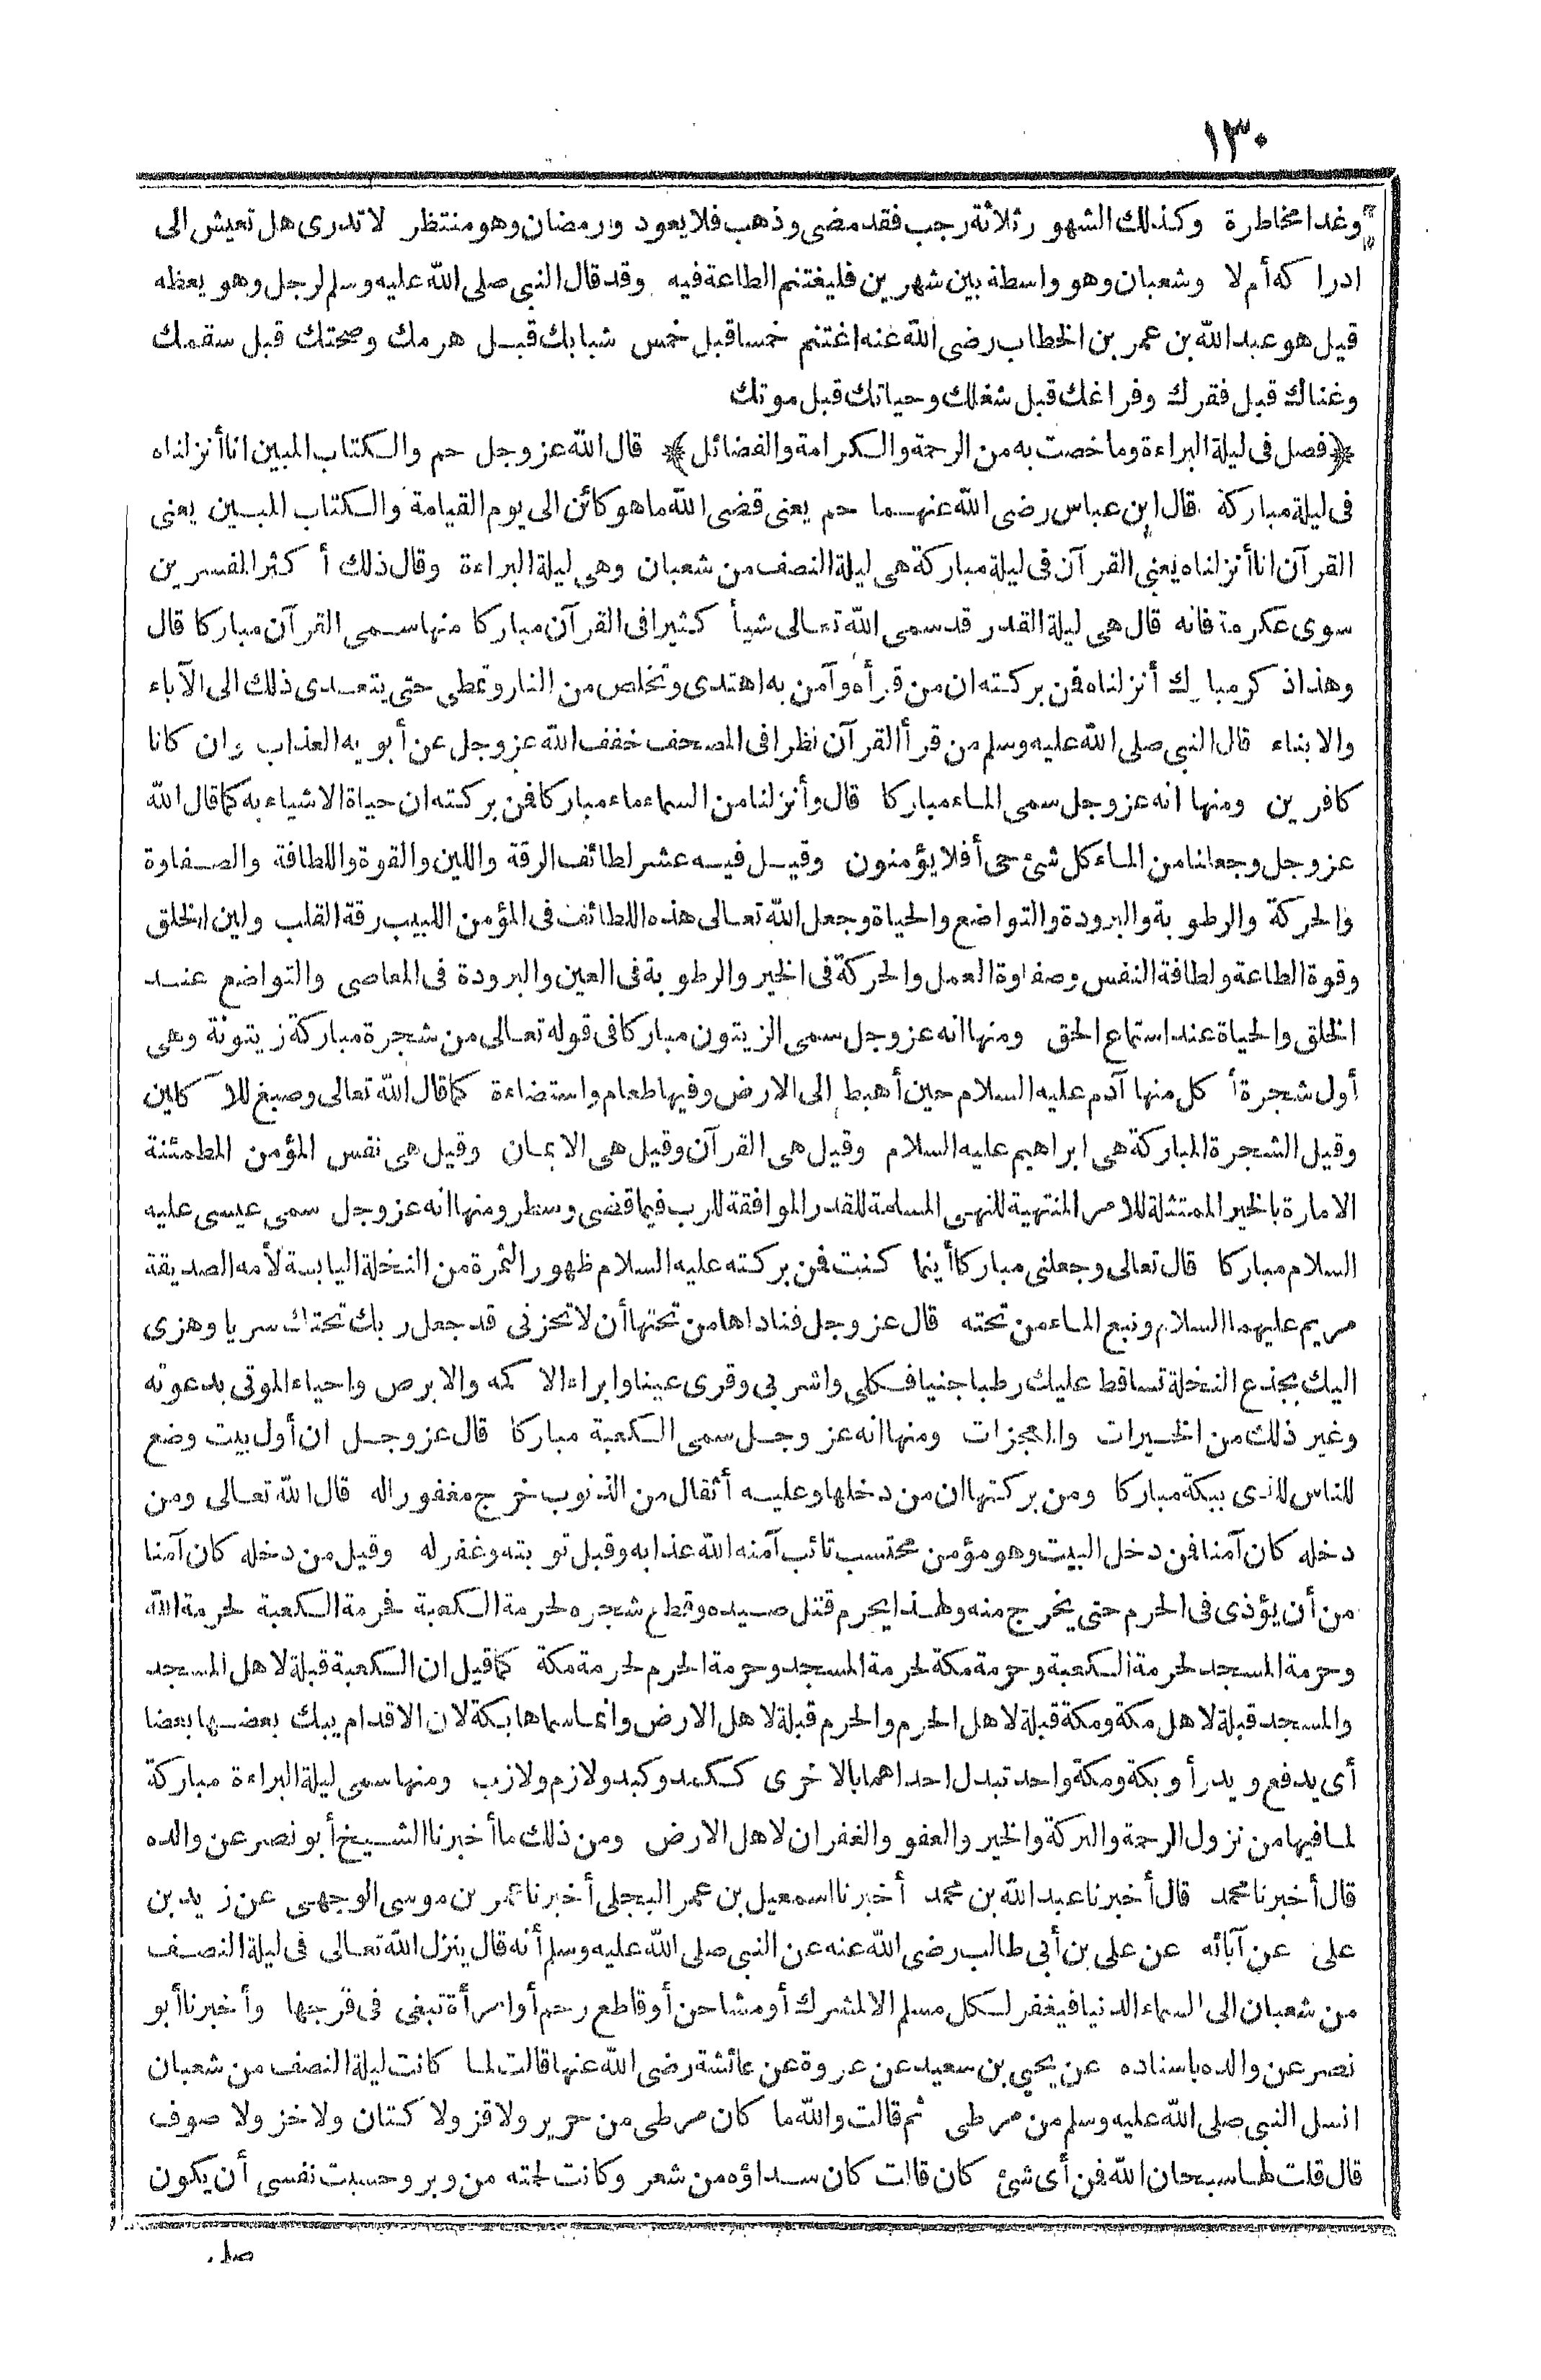 ١٣٠
وغدا مخاطرة وكذلك الشهور ثلاثة رجب فقد مضى وذهب فلا يعود ورمضان وهو منتظر لا تدرى هل تعيش الى
ادراكه أم لا وشعبان وهو واسطة بين شهرين فليغتنم الطاعة فيه وقد قال النبى صلى الله عليه وسلم لرجل وهو يعظه
قيل هو عبد الله بن عمر بن الخطاب رضى الله عنه اغتنم خمسا قبل خمس شبابك قبل هرمك وصحتك قبل سقمك
وغناك قبل فقرك وفراغك قبل شغلك وحياتك قبل موتك
﴿فصل فى ليلة البراءة وما خصت به من الرحمة والكرامة والفضائل﴾ قال الله عز وجل حم والكتاب المبين انا أنزلناه
فى ليلة مباركة قال ابن عباس رضى الله عنهما حم يعنى قضى الله ما هو كائن الى يوم القيامة والكتاب المبين يعنى
القرآن انا أنزلناه يعنى القرآن فى ليلة مباركة هى ليلة النصف من شعبان وهى ليلة البراءة وقال ذلك أكثر المفسرين
سوى عكرمة فانه قال هى ليلة القدر قد سمى الله تعالى شيأ كثيرا فى القرآن مباركا منها سمى القرآن مباركا قال
وهذا ذكر مبارك أنزلناه فمن بركته ان من قرأه وآمن به اهتدى وتخلص من النار ونطى حتى يتعدى ذلك الى الآباء
والابناء قال النبى صلى الله عليه وسلم من قرأ القرآن نظرا فى المصحف خفف الله عز وجل عن أبويه العذاب وان كانا
كافرين ومنها انه عز وجل سمى الماء مباركا قال وأنزلنا من السماء ماء مباركا فمن بركته ان حياة الاشياء به كما قال الله
عز وجل وجعلنا من الماء كل شئ حى أفلا يؤمنون وقيل فيه عشر لطائف الرقة واللين والقوة واللطافة والصفاوة
والحركة والرطوبة والبرودة والتواضع والحياة وجعل الله تعالى هذه اللطائف فى المؤمن اللبيب رقة القلب ولين الخلق
وقوة الطاعة ولطافة النفس وصفاوة العمل والحركة فى الخير والرطوبة فى العين والبرودة فى المعاصى والتواضع عند
الخلق والحياة عند استماع الحق ومنها انه عز وجل سمى الزيتون مباركا فى قوله تعالى من شجرة مباركة زيتونة وهى
أول شجرة أكل منها آدم عليه السلام حين أهبط الى الارض وفيها طعام واستضاءة كما قال الله تعالى وصبغ للآكلين
وقيل الشجرة المباركة هى ابراهيم عليه السلام وقيل هى القرآن وقيل هى الايمان وقيل هى نفس المؤمن المطمئنة
الامارة بالخير الممتثلة للامر المنتهية للنهى المسلمة للقدر الموافقة للرب فيما قضى وسطر ومنها انه عز وجل سمى عيسى عليه
السلام مباركا قال تعالى وجعلنى مباركا أينما كنت فمن بركته عليه السلام ظهور الثمرة من النخلة اليابسة لأمه الصديقة
مريم عليهما السلام ونبع الماء من تحته قال عز وجل فناداها من تحتها أن لا تحزنى قد جعل ربك تحتك سريا وهزى
اليك بجذع النخلة تساقط عليك رطبا جنيا فكلى واشربى وقرى عينا وابراء الاكمه والابرص واحياء الموتى بدعوته
وغير ذلك من الخيرات والمعجزات ومنها انه عز وجل سمى الكعبة مباركا قال عز وجل ان أول بيت وضع
للناس للذى ببكة مباركا ومن بركتها ان من دخلها وعليه أثقال من الذنوب خرج مغفورا له قال الله تعالى ومن
دخله كان آمنا فمن دخل البيت وهو مؤمن محتسب تائب آمنه الله عذابه وقبل توبته وغفر له وقيل من دخله كان آمنا
من أن يؤذى فى الحرم حتى يخرج منه ولهذا يحرم قتل صيده وقطع شجره لحرمة الكعبة فحرمة الكعبة لحرمة الله
وحرمة المسجد لحرمة الكعبة وحرمة مكة لحرمة المسجد وحرمة الحرم لحرمة مكة كما قيل ان الكعبة قبلة لاهل المسجد
والمسجد قبلة لاهل مكة ومكة قبلة لاهل الحرم والحرم قبلة لاهل الارض وانما سماها بكة لان الاقدام يبك بعضها بعضا
أى يدفع ويدرأ وبكة ومكة واحد تبدل احداهما بالاخرى ككمد وكبد ولازم ولازب ومنها سمى ليلة البراءة مباركة
لما فيها من نزول الرحمة والبركة والخير والعفو والغفران لاهل الارض ومن ذلك ما أخبرنا الشيخ أبو نصر عن والده
قال أخبرنا محمد قال أخبرنا عبد الله بن محمد أخبرنا اسمعيل بن عمر البجلى أخبرنا عمر بن موسى الوجهى عن زيد بن
على عن آبائه عن على بن أبى طالب رضى الله عنه عن النبى صلى الله عليه وسلم أنه قال ينزل الله تعالى فى ليلة النصف
من شعبان الى السماء الدنيا فيغفر لكل مسلم الا لمشرك أو مشاحن أو قاطع رحم أو امرأة تبغى فى فرجها وأخبرنا أبو
نصر عن والده باسناده عن يحيى بن سعيد عن عروة عن عائشة رضى الله عنها قالت لما كانت ليلة النصف من شعبان
انسل النبى صلى الله عليه وسلم من مرطى ثم قالت والله ما كان مرطى من حرير ولا قز ولا كتان ولا خز ولا صوف
قال قلت لها سبحان الله فمن أى شئ كان قالت كان سداؤه من شعر وكانت لحمته من وبر وحسبت نفسى أن يكون